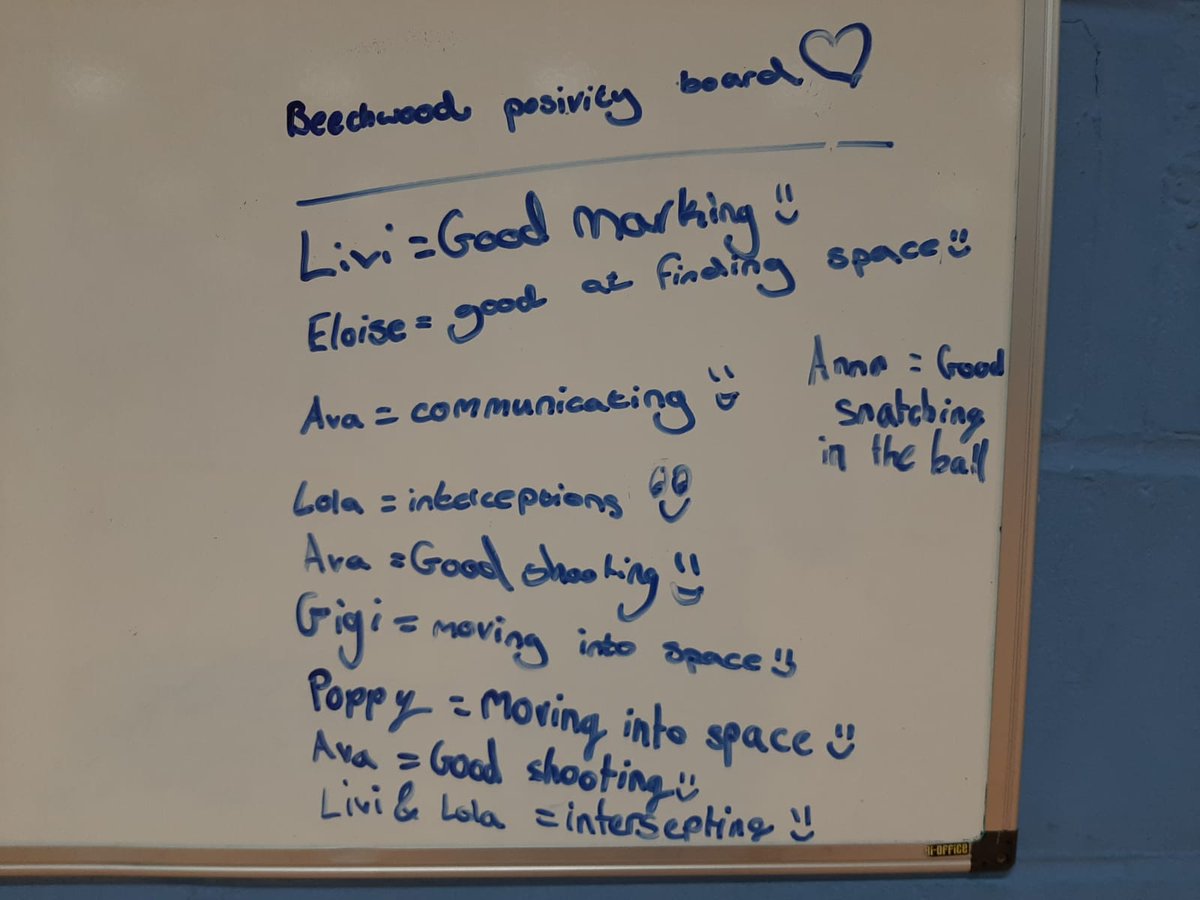 Beechwood posivity board
Livi = Good marking
Eloise = good at finding space
Ava = communicating
Anna = Good
snatching
in the ball
Lola = interceptions
Ava = Good shooting
Gigi = moving into space
Poppy = Moving into space
Ava = Good shooting
Livi & Lola = intersepting
Bi-OFFICE